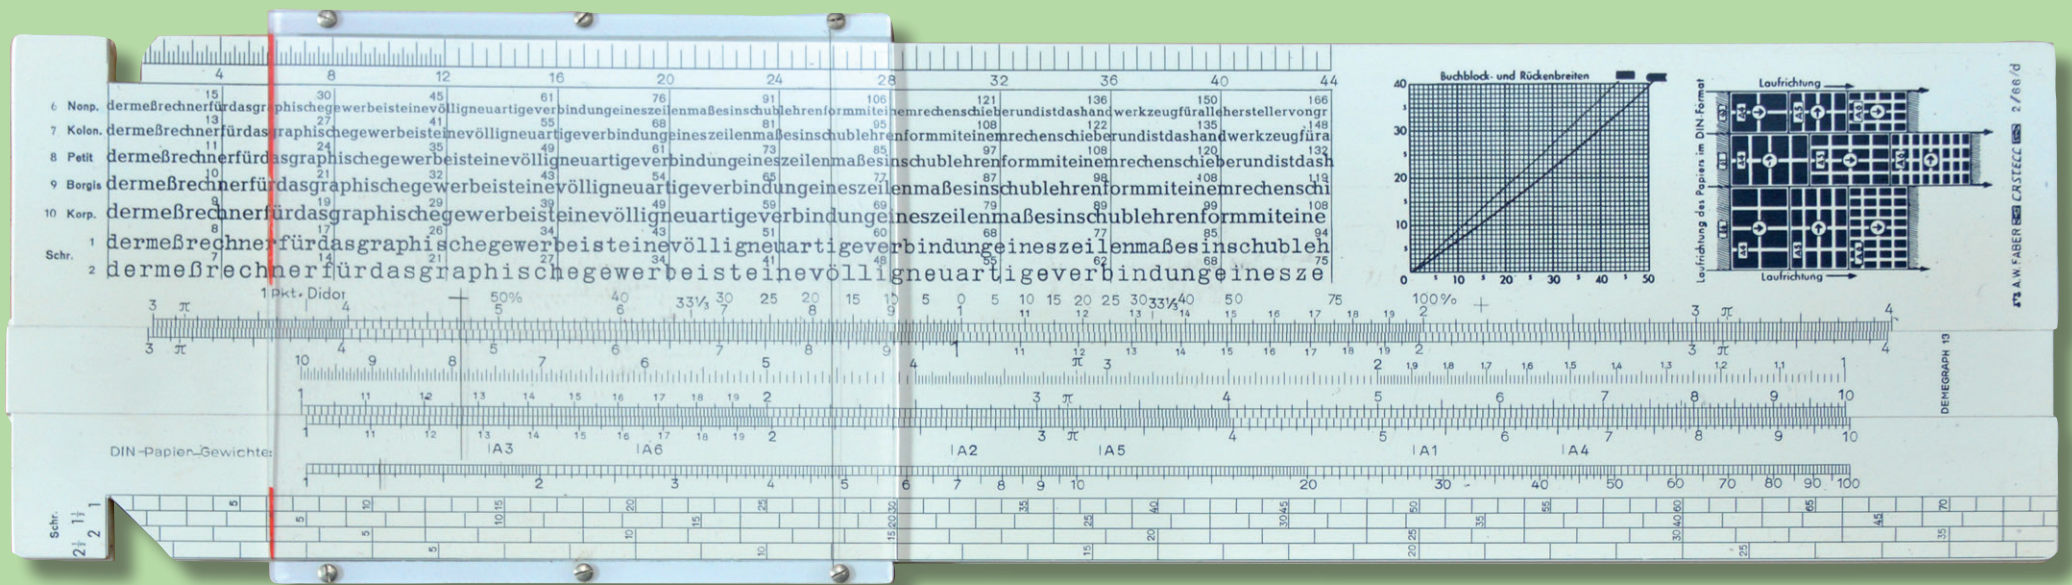 4 8 12 16 20 24 28 32 36 40 44
15 30 45 61 76 91 106 121 136 150 166
6 Nonp. dermeßrechnerfürdasgraphischegewerbeisteinevölligneuartigeverbindungeineszeilenmaßesinschublehrenformmiteinemrechenschieberundistdashandwerkzeugfüralleherstellervongr
13 27 41 55 68 81 95 108 122 135 148
7 Kolon. dermeßrechnerfürdasgraphischegewerbeisteinevölligneuartigeverbindungeineszeilenmaßesinschublehrenformmiteinemrechenschieberundistdashandwerkzeugfüra
11 24 35 49 61 73 85 97 108 120 132
8 Petit dermeßrechnerfürdasgraphischegewerbeisteinevölligneuartigeverbindungeineszeilenmaßesinschublehrenformmiteinemrechenschieberundistdash
10 21 32 43 54 65 77 87 98 108 119
9 Borgis dermeßrechnerfürdasgraphischegewerbeisteinevölligneuartigeverbindungeineszeilenmaßesinschublehrenformmiteinemrechenschi
9 19 29 39 49 59 69 79 89 99 108
10 Korp. dermeßrechnerfürdasgraphischegewerbeisteinevölligneuartigeverbindungeineszeilenmaßesinschublehrenformmiteine
8 17 26 34 43 51 60 68 77 85 94
Schr. 1 dermeßrechnerfürdasgraphischegewerbeisteinevölligneuartigeverbindungeineszeilenmaßesinschubleh
7 14 21 27 34 41 48 55 62 68 75
2 dermeßrechnerfürdasgraphischegewerbeisteinevölligneuartigeverbindungeinesze
Buchblock- und Rückenbreiten
40
30
20
10
0
5 10 5 20 5 30 5 40 5 50
Laufrichtung des Papiers im DIN-Format
Laufrichtung
Laufrichtung
A.W. FABER CASTELL 2/66/d
1 pkt. Didot 50% 40 33⅓ 30 25 20 15 10 5 0 5 10 15 20 25 30 33⅓ 40 50 75 100%
3 π 4 5 6 7 8 9 1 11 12 13 14 15 16 17 18 19 2 3 π 4
3 π 4 5 6 7 8 9 1 11 12 13 14 15 16 17 18 19 2 3 π 4
10 9 8 7 6 5 4 π 3 2 1,9 1,8 1,7 1,6 1,5 1,4 1,3 1,2 1,1 1
1 11 12 13 14 15 16 17 18 19 2 3 π 4 5 6 7 8 9 10
1 11 12 13 14 15 16 17 18 19 2 3 π 4 5 6 7 8 9 10
DEMEGRAPH 13
DIN-Papier-Gewichte: A3 A6 A2 A5 A1 A4
1 2 3 4 5 6 7 8 9 10 20 30 40 50 60 70 80 90 100
Schr.
1 5 10 15 20 25 30 35 40 45 50 55 60 65 70
1½ 5 10 15 20 25 30 35 40 45
2 5 10 15 20 25 30 35
2½ 5 10 15 20 25